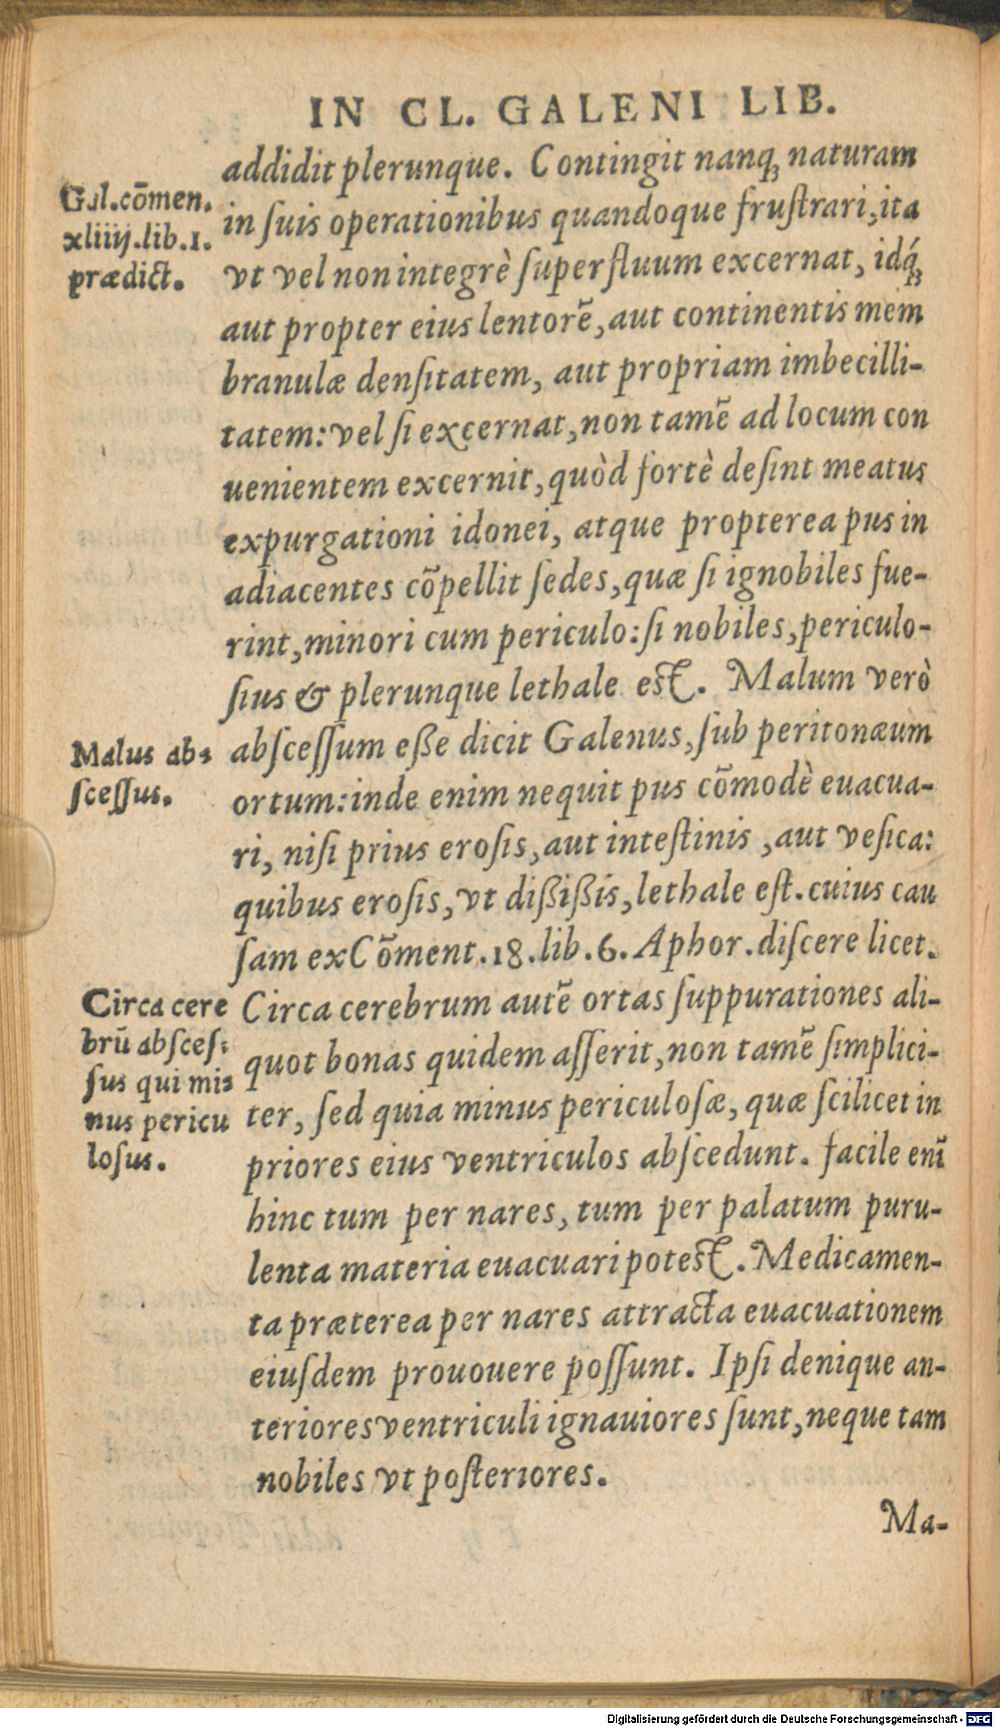 IN CL. GALENI LIB.
addidit plerunque. Contingit nanqꝫ naturam
Gal.cōmen.
xliiij.lib.1.
prædict.
in ſuis operationibus quandoque fruſtrari, ita
vt vel non integrè ſuperfluum excernat, idqꝫ́
aut propter eius lentorē, aut continentis mem
branulæ denſitatem, aut propriam imbecilli-
tatem: vel ſi excernat, non tamē ad locum con
uenientem excernit, quòd fortè deſint meatus
expurgationi idonei, atque propterea pus in
adiacentes cōpellit ſedes, quæ ſi ignobiles fue-
rint, minori cum periculo: ſi nobiles, periculo-
ſius & plerunque lethale eſt. Malum verò
Malus ab-
ſceſſus.
abſceſſum eſſe dicit Galenus, ſub peritonæum
ortum: inde enim nequit pus cōmodè euacua-
ri, niſi prius eroſis, aut inteſtinis, aut veſica:
quibus eroſis, vt diſſiſſis, lethale eſt. cuius cau
ſam ex Cōment. 18. lib. 6. Aphor. diſcere licet.
Circa cere
brū abſceſ-
ſus qui mi-
nus pericu
loſus.
Circa cerebrum autē ortas ſuppurationes ali-
quot bonas quidem aſſerit, non tamē ſimplici-
ter, ſed quia minus periculoſæ, quæ ſcilicet in
priores eius ventriculos abſcedunt. facile enī
hinc tum per nares, tum per palatum puru-
lenta materia euacuari poteſt. Medicamen-
ta præterea per nares attracta euacuationem
eiuſdem prououere poſſunt. Ipſi denique an-
teriores ventriculi ignauiores ſunt, neque tam
nobiles vt poſteriores.
Ma-
Digitalisierung gefördert durch die Deutsche Forschungsgemeinschaft - DFG